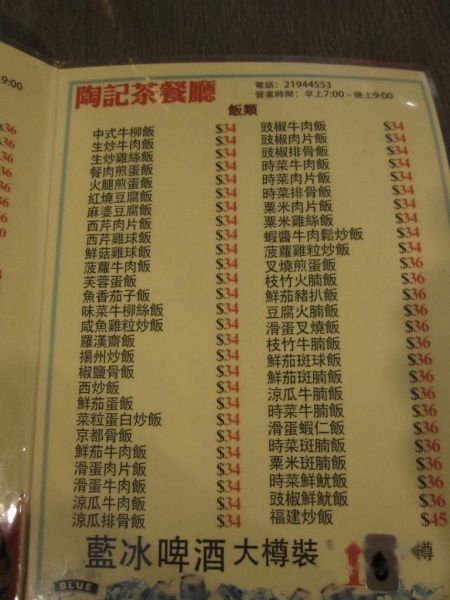 陶記茶餐廳
電話：21944553
營業時間：早上7:00－晚上9:00
飯類
中式牛柳飯 $34
生炒牛肉飯 $34
生炒雞絲飯 $34
餐肉煎蛋飯 $34
火腿煎蛋飯 $34
紅燒豆腐飯 $34
麻婆豆腐飯 $34
西芹肉片飯 $34
西芹雞球飯 $34
鮮菇雞球飯 $34
菠蘿牛肉飯 $34
芙蓉蛋飯 $34
魚香茄子飯 $34
味菜牛柳絲飯 $34
咸魚雞粒炒飯 $34
羅漢齋飯 $34
揚州炒飯 $34
椒鹽骨飯 $34
西炒飯 $34
鮮茄蛋飯 $34
菜粒蛋白炒飯 $34
京都骨飯 $34
鮮茄牛肉飯 $34
滑蛋肉片飯 $34
滑蛋牛肉飯 $34
涼瓜牛肉飯 $34
涼瓜排骨飯 $34
豉椒牛肉飯 $34
豉椒肉片飯 $34
豉椒排骨飯 $34
時菜牛肉飯 $34
時菜肉片飯 $34
時菜排骨飯 $34
粟米肉片飯 $34
粟米雞絲飯 $34
蝦醬牛肉鬆炒飯 $34
菠蘿雞粒炒飯 $34
叉燒煎蛋飯 $36
枝竹火腩飯 $36
鮮茄豬扒飯 $36
豆腐火腩飯 $36
滑蛋叉燒飯 $36
枝竹牛腩飯 $36
鮮茄斑球飯 $36
鮮茄斑腩飯 $36
涼瓜牛腩飯 $36
時菜牛腩飯 $36
滑蛋蝦仁飯 $36
時菜斑腩飯 $36
粟米斑腩飯 $36
時菜鮮魷飯 $36
豉椒鮮魷飯 $36
福建炒飯 $45
藍冰啤酒 大樽裝
樽
BLUE